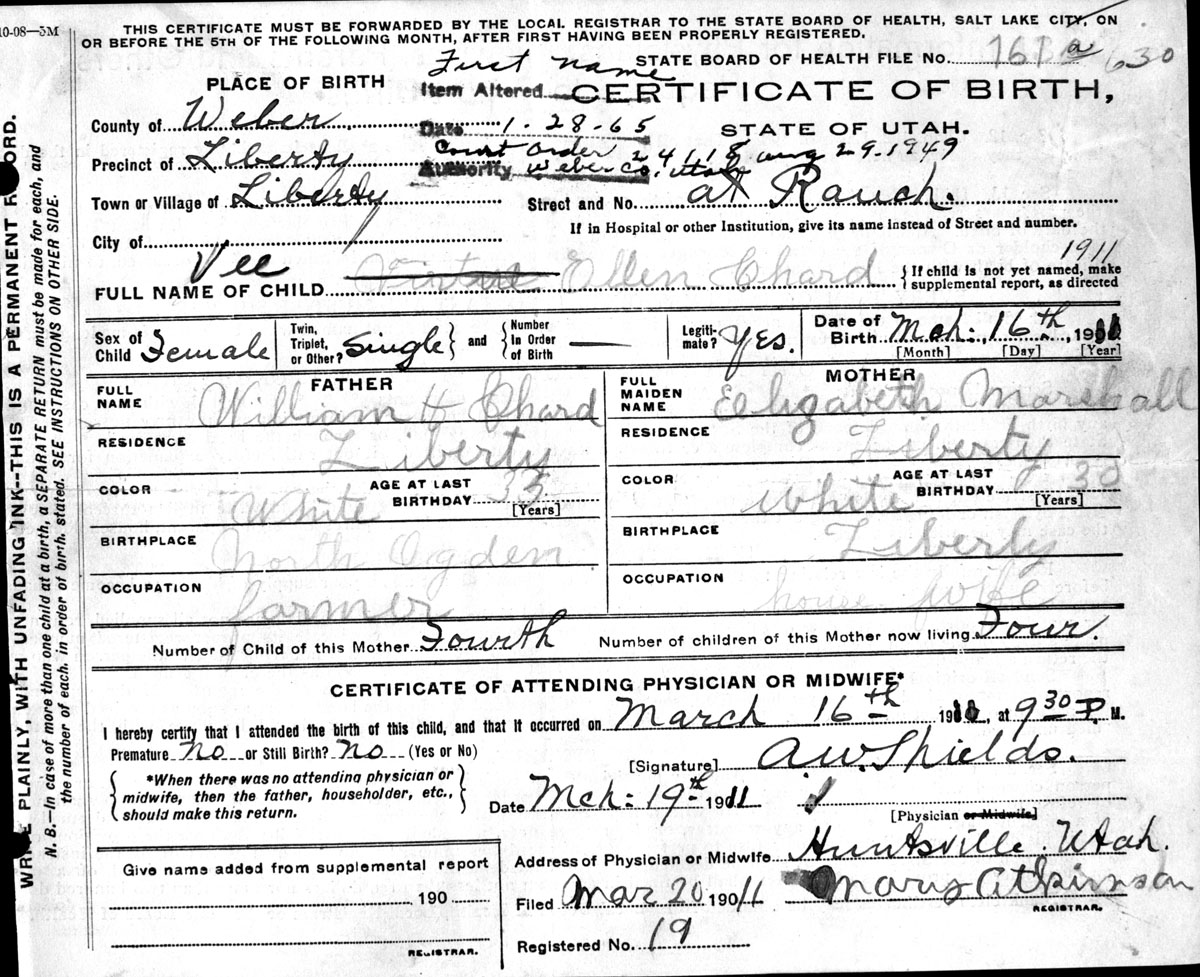 10-08—3M
THIS CERTIFICATE MUST BE FORWARDED BY THE LOCAL REGISTRAR TO THE STATE BOARD OF HEALTH, SALT LAKE CITY, ON
OR BEFORE THE 5TH OF THE FOLLOWING MONTH, AFTER FIRST HAVING BEEN PROPERLY REGISTERED.
STATE BOARD OF HEALTH FILE NO. 630
First name
PLACE OF BIRTH
Item Altered
CERTIFICATE OF BIRTH,
County of Weber
Date 1-28-65
STATE OF UTAH.
Precinct of Liberty
Court Order 24118 Aug 29-1949
Authority Weber Co. Utah
Town or Village of Liberty
Street and No. at Ranch.
City of
If in Hospital or other Institution, give its name instead of Street and number.
1911
Vee
FULL NAME OF CHILD Ellen Chard
{If child is not yet named, make
supplemental report, as directed
Sex of Child Female
Twin, Triplet, or Other? Single } and { Number In Order of Birth —
Legitimate? Yes.
Date of Birth Mch. 16th, 1911
[Month] [Day] [Year]
FATHER
MOTHER
FULL NAME William H Chard
FULL MAIDEN NAME Elizabeth Marshall
RESIDENCE Liberty
RESIDENCE Liberty
COLOR White
AGE AT LAST BIRTHDAY 35 [Years]
COLOR White
AGE AT LAST BIRTHDAY 30 [Years]
BIRTHPLACE North Ogden
BIRTHPLACE Liberty
OCCUPATION farmer
OCCUPATION house wife
Number of Child of this Mother Fourth
Number of children of this Mother now living Four.
CERTIFICATE OF ATTENDING PHYSICIAN OR MIDWIFE*
I hereby certify that I attended the birth of this child, and that it occurred on March 16th 1911, at 9 30 P. M.
Premature No or Still Birth? No (Yes or No)
[Signature] A.W. Shields.
{ *When there was no attending physician or
midwife, then the father, householder, etc.,
should make this return. }
Date Mch: 19th 1911
[Physician or Midwife]
Address of Physician or Midwife Huntsville. Utah.
Give name added from supplemental report
190
REGISTRAR.
Filed Mar 20 1911
Mary Atkinson
REGISTRAR.
Registered No. 19
WRITE PLAINLY, WITH UNFADING INK--THIS IS A PERMANENT RECORD.
N. B.—In case of more than one child at a birth, a SEPARATE RETURN must be made for each, and
the number of each, in order of birth, stated. SEE INSTRUCTIONS ON OTHER SIDE.